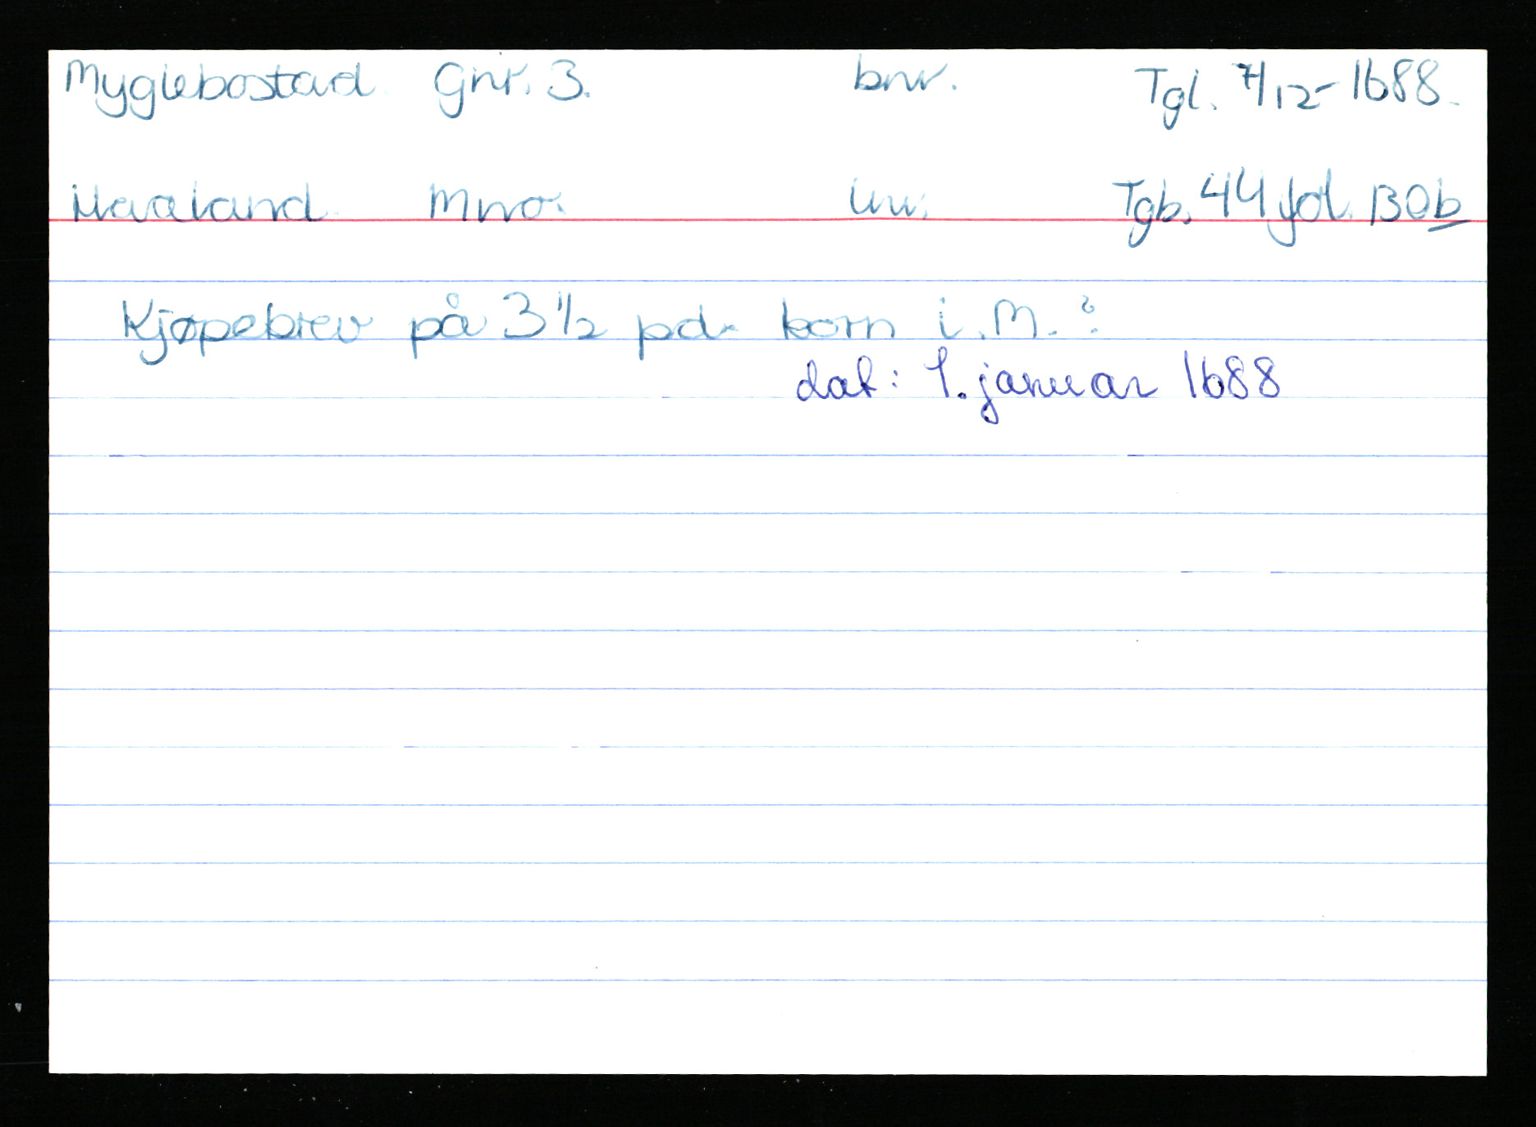 Myglebostad Gnr. 3. bnr. Tgl. 7/12-1688.
Haaland Mno: lnr. Tgb. 44 fol. 130b
Kjøpebrev på 3 1/2 pd. korn i M.:
dat: 1. januar 1688